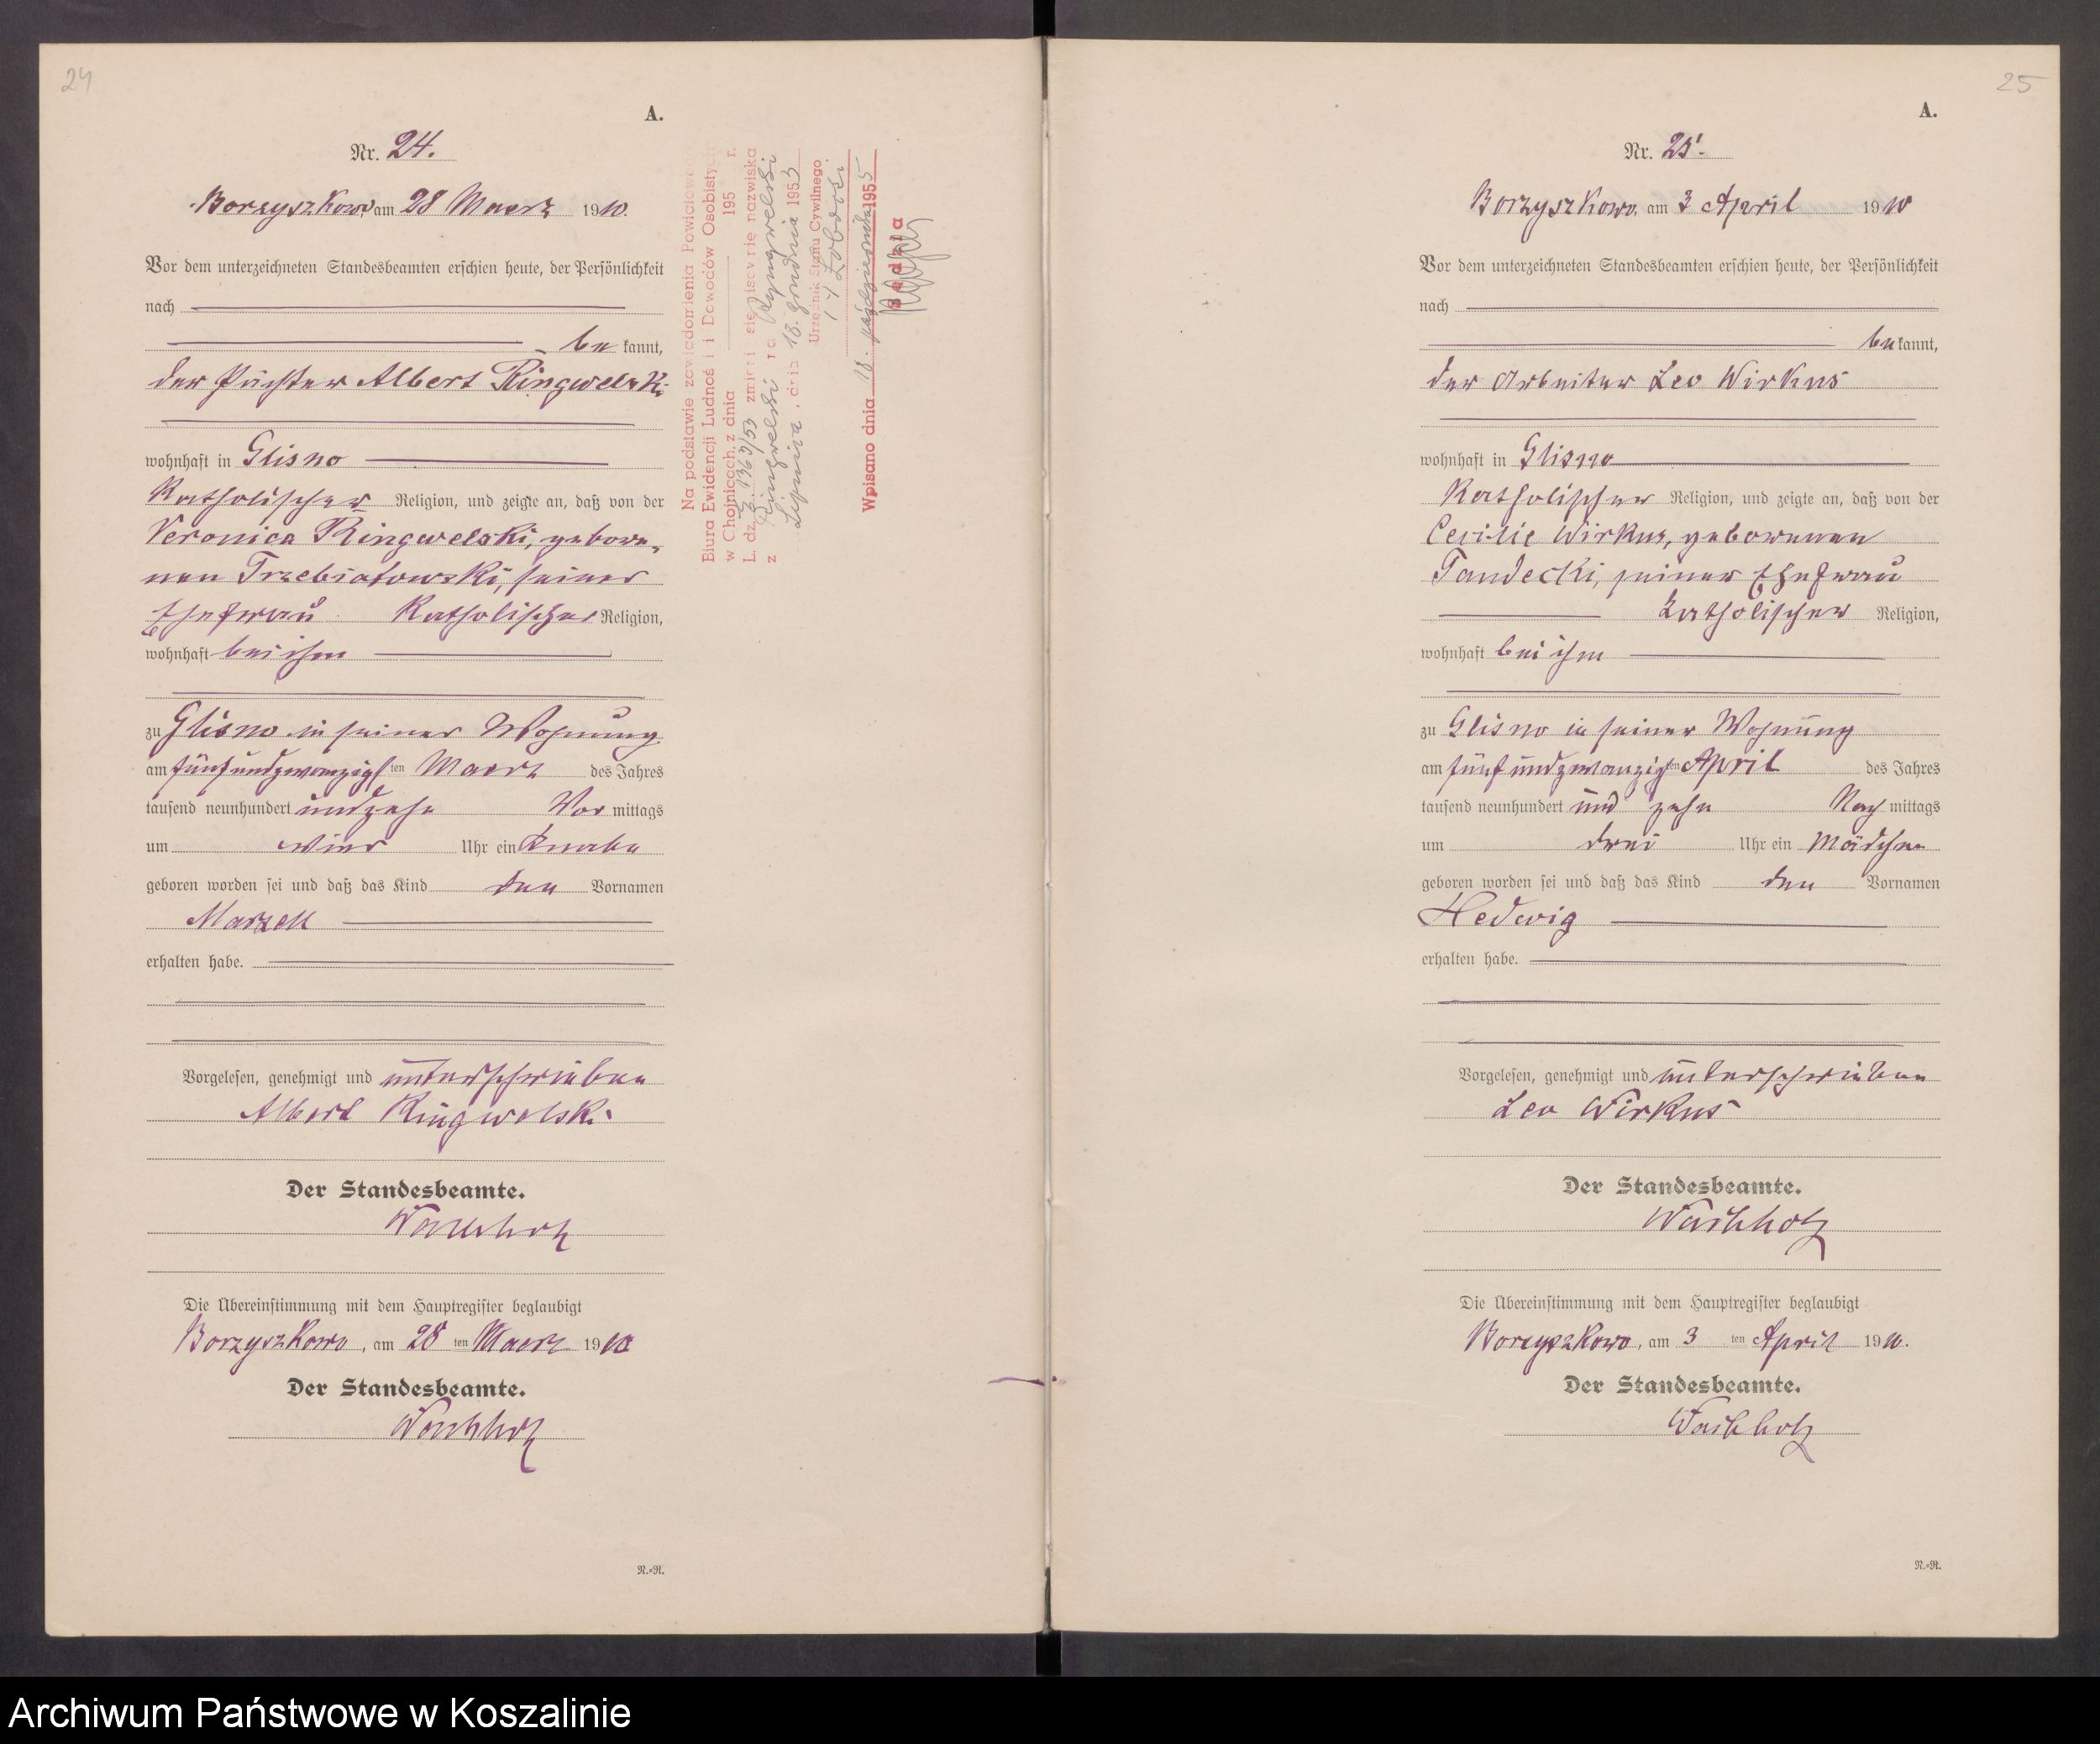 24
A.
Nr. 24.
Borzyszkowo am 28 Maerz 1910.
Vor dem unterzeichneten Standesbeamten erschien heute, der Persönlichkeit
nach
be kannt,
der Pächter Albert Ringwelski
wohnhaft in Glisno
Katholischer Religion, und zeigte an, daß von der
Veronica Ringwelski, gebore-
nen Trzebiatowski, seiner
Ehefrau Katholischer Religion,
wohnhaft bei ihm
zu Glisno in seiner Wohnung
am fünfundzwanzigsten Maerz des Jahres
tausend neunhundert undzehn Vor mittags
um vier Uhr ein Knabe
geboren worden sei und daß das Kind den Vornamen
Marzell
erhalten habe.
Vorgelesen, genehmigt und unterschrieben
Albert Ringwelski
Der Standesbeamte.
Wachholz
Die Übereinstimmung mit dem Hauptregister beglaubigt
Borzyszkowo, am 28 ten Maerz 1910
Der Standesbeamte.
Wachholz
R.=R.
Na podstawie zawiadomienia Powiatowego
Biura Ewidencji Ludności i Dowodów Osobistych
w Chojnicach, z dnia 195 r.
L. dz. 1363/53 zmieni się pisownię nazwiska
z Ringwelski na Ryngwelski
Lipnica, dnia 18. grudnia 1953
Urzędnik Stanu Cywilnego
Wpisano dnia 18. października 1955
Sędzia
25
A.
Nr. 25.
Borzyszkowo am 3 April 1910
Vor dem unterzeichneten Standesbeamten erschien heute, der Persönlichkeit
nach
be kannt,
der Arbeiter Leo Wirkus
wohnhaft in Glisno
Katholischer Religion, und zeigte an, daß von der
Cecilie Wirkus, geborenen
Tandecki, seiner Ehefrau
katholischer Religion,
wohnhaft bei ihm
zu Glisno in seiner Wohnung
am fünfundzwanzigsten April des Jahres
tausend neunhundert und zehn Nach mittags
um drei Uhr ein Mädchen
geboren worden sei und daß das Kind den Vornamen
Hedwig
erhalten habe.
Vorgelesen, genehmigt und unterschrieben
Leo Wirkus
Der Standesbeamte.
Wachholz
Die Übereinstimmung mit dem Hauptregister beglaubigt
Borzyszkowo, am 3 ten April 1910.
Der Standesbeamte.
Wachholz
R.=R.
Archiwum Państwowe w Koszalinie